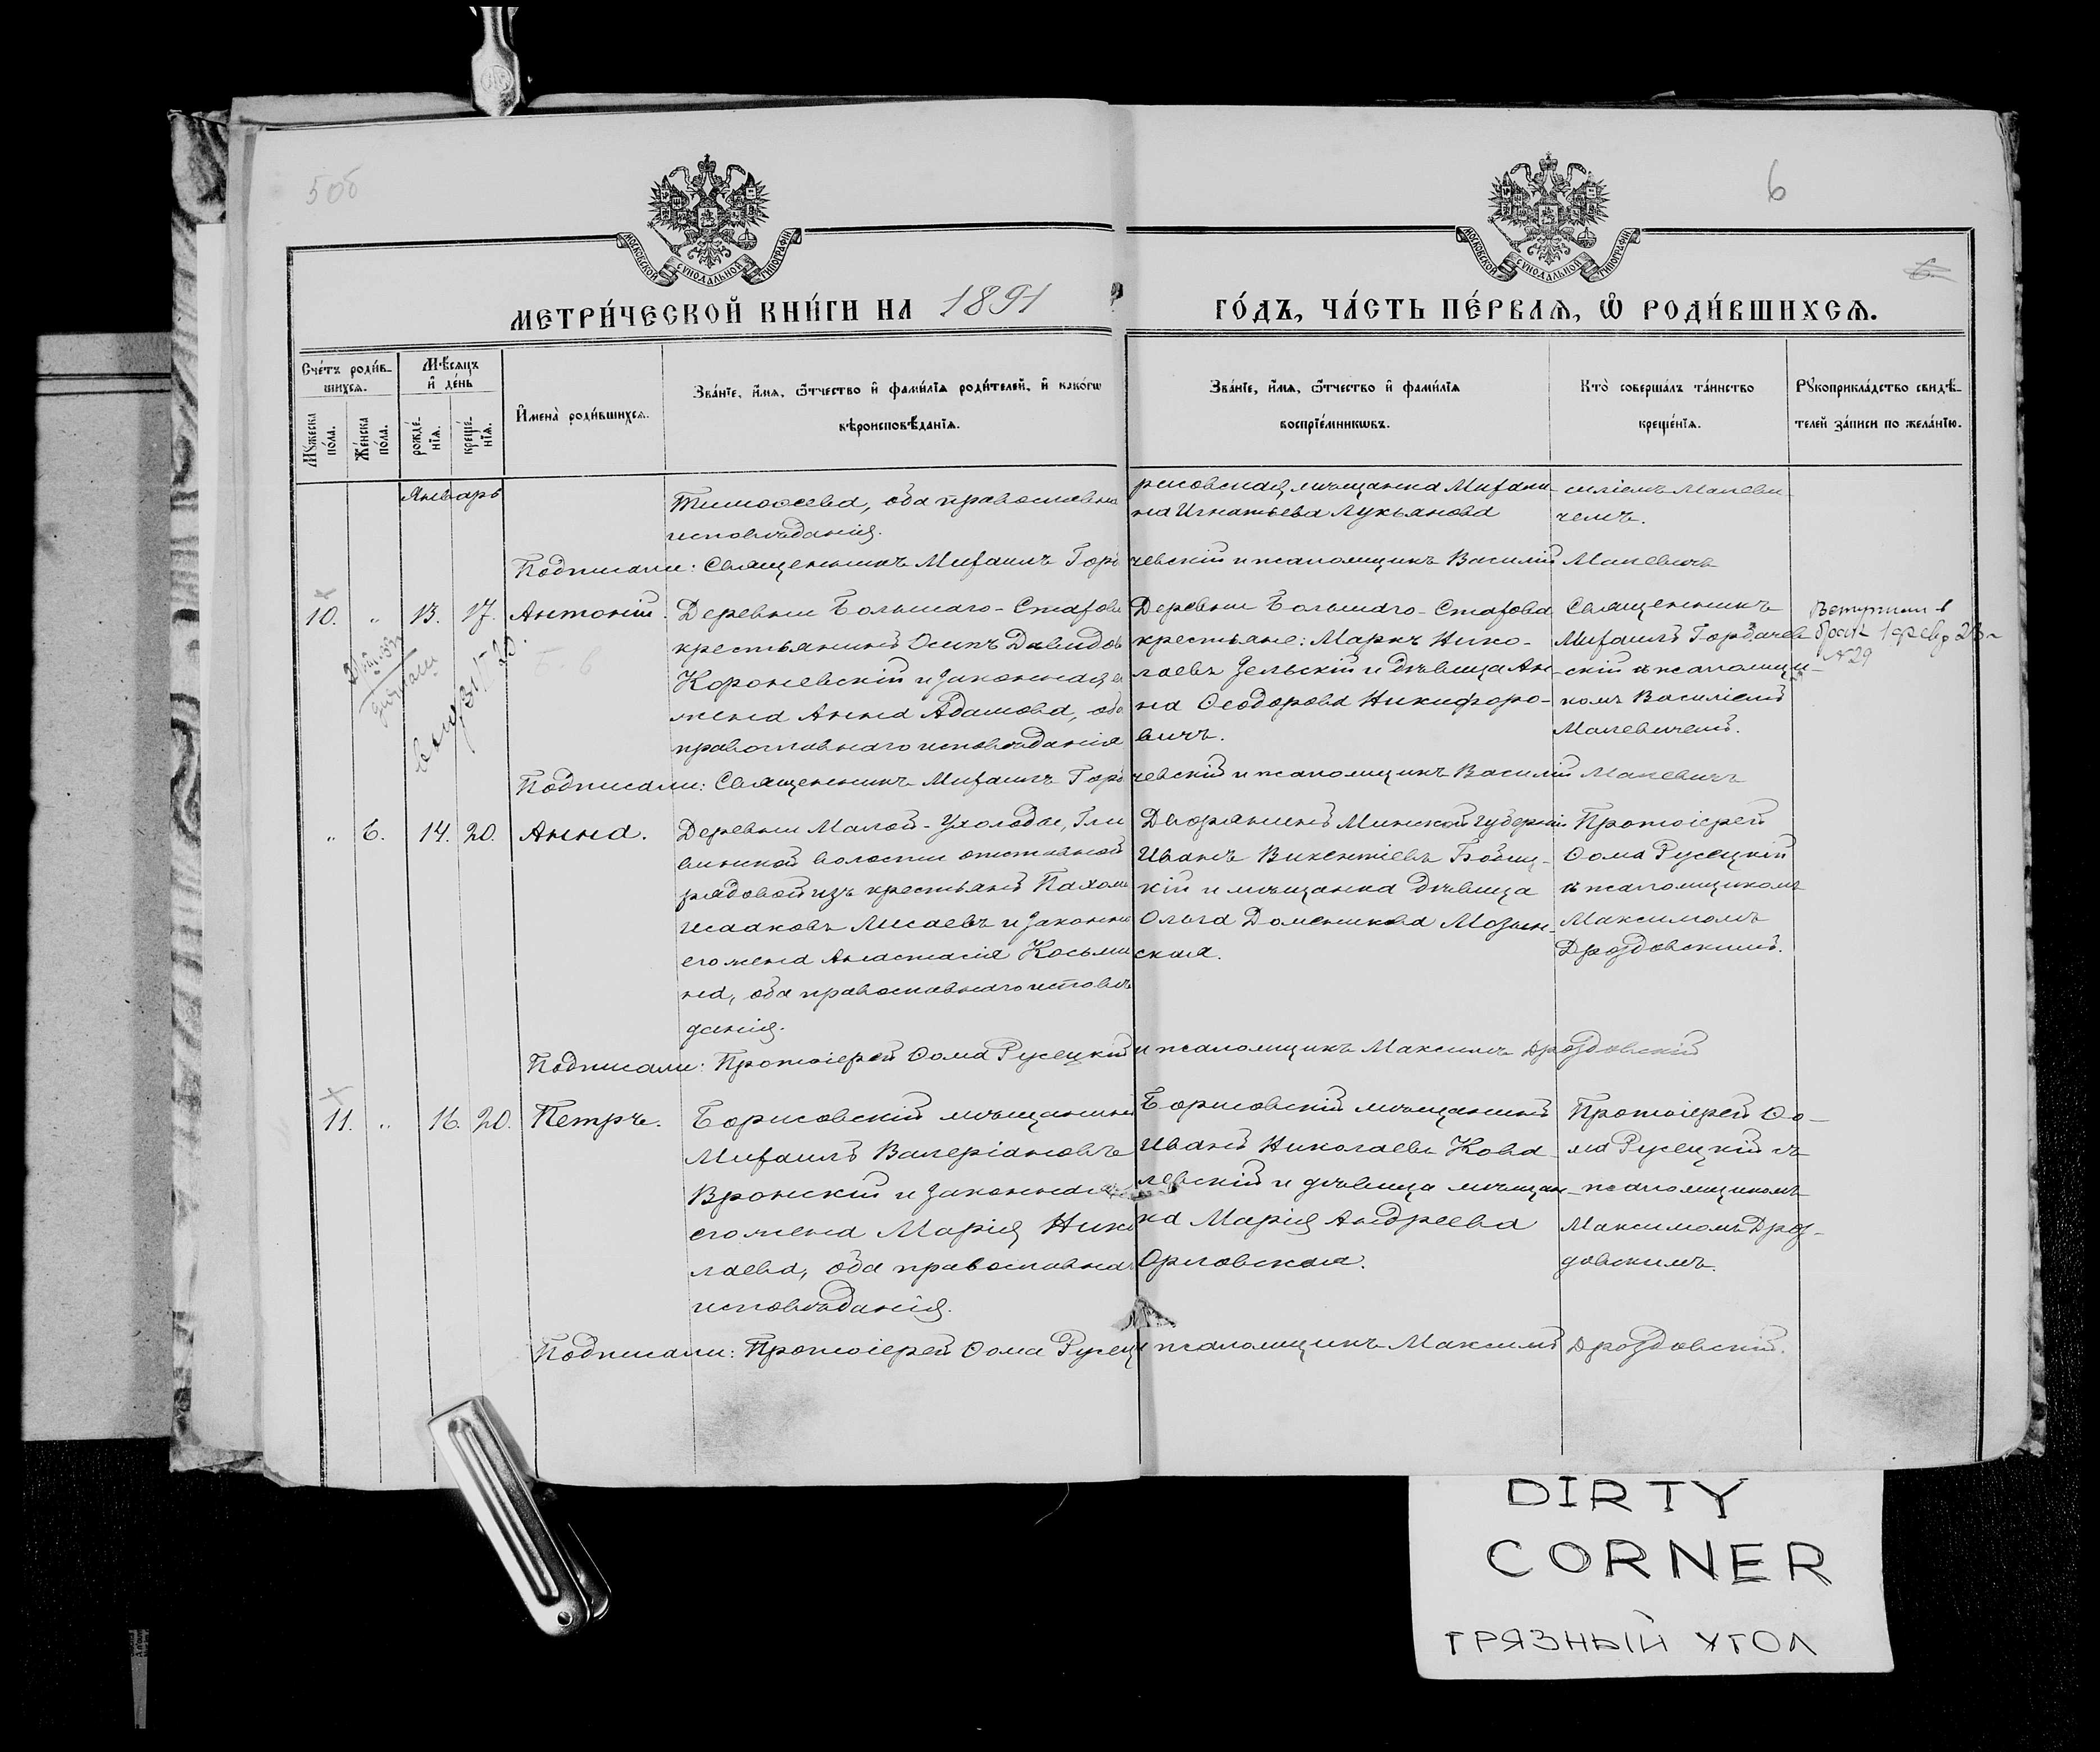 5 об
6
6.
МОСКОВСКОЙ СѴНОДАЛЬНОЙ ТИПОГРАФІИ
МОСКОВСКОЙ СѴНОДАЛЬНОЙ ТИПОГРАФІИ
МЕТРИ́ЧЕСКОЙ КНИ́ГИ НА 1891
ГО́ДЪ, ЧА́СТЬ ПЕ́РВАѦ, Ѡ҆ РОДИ́ВШИХСѦ.
Сче́тъ роди́в-
шихсѧ.
Мѣ́сѧцъ
и҆ де́нь
Мꙋ́жеска
по́ла.
Же́нска
по́ла.
рожде́-
нїѧ.
креще́-
нїѧ.
И҆мена̀ роди́вшихсѧ.
Зва́нїе, и҆́мѧ, ѻ҆́тчество и҆ фами́лїѧ роди́телей, и҆ како́гѡ
вѣроисповѣ́данїѧ.
Зва́нїе, и҆́мѧ, ѻ҆́тчество и҆ фами́лїѧ
воспрїе́мникѡвъ.
Кто̀ соверша́лъ та́инство
креще́нїѧ.
Рꙋкоприкла́дство свидѣ́-
телей за́писи по жела́нїю.
Январь
Тимоѳеева, оба православна
исповѣданія.
рисовская мѣщанка Михали-
на Игнатьева Лукьянова
силіемъ Малеви-
чемъ.
Подписали: Священникъ Михаилъ Гор чевскій и псаломщикъ Василій Малевичъ
10. „ 13. 17. Антоній.
Деревни Большаго-Стахова
крестьянинъ Осипъ Давидовъ
Короневскій и законная е
жена Анна Адамова, оба
православнаго исповѣданія
Деревни Большаго-Стахова
крестьяне: Маркъ Нико-
лаевъ Зельскій и дѣвица Ан-
на Ѳеодорова Никифоро-
вичъ.
Священникъ
Михаилъ Гордачев-
скій съ псаломщи-
комъ Василіемъ
Малевичемъ.
Вступил в
брак 1 февр
№ 29
Подписали: Священникъ Михаилъ Гор чевскій и псаломщикъ Василій Малевичъ
„ 6. 14. 20. Анна.
Деревни Малой-Ухолоды, Гли
винской волости отставной
рядовой изъ крестьянъ Пахом
Исааковъ Лисаевъ и законна
его жена Анастасія Косьми
на, оба православнаго исповѣ
данія.
Дворянинъ Минской губерніи
Иванъ Викентіевъ
кій и мѣщанка дѣвица
Ольга Доменикова Мозын-
ская.
Протоіерей
Ѳома Русецкій
съ псаломщикомъ
Максимомъ
Дроздовскимъ.
Подписали: Протоіерей Ѳома Русецкій и псаломщикъ Максимъ Дроздовскій
11. „ 16. 20. Петръ.
Борисовскій мѣщанинъ
Михаилъ Валеріановъ
Вронскій и законная
его жена Марія Нико
лаева, оба православна
исповѣданія.
Борисовскій мѣщанинъ
Иванъ Николаевъ Кова
левскій и дѣвица мѣщан-
ка Марія Андреева
Орловская.
Протоіерей Ѳо-
ма Русецкій съ
псаломщикомъ
Максимомъ Дроз-
довскимъ.
Подписали: Протоіерей Ѳома Русец и псаломщикъ Максимъ Дроздовскій.
DIRTY
CORNER
ГРЯЗНЫЙ УГОЛ